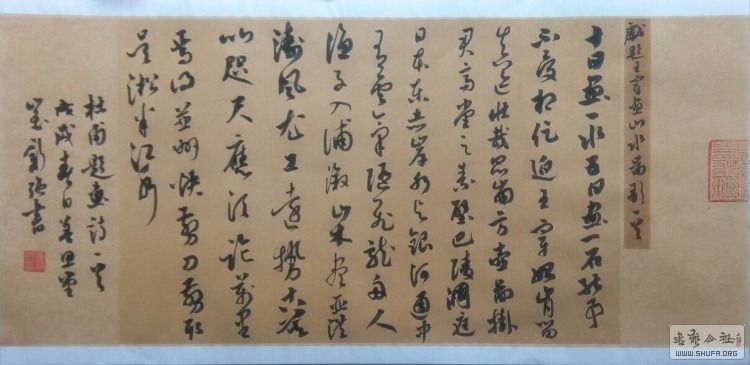 戲題王宰畫山水圖歌一首
十日畫一水五日畫一石能事
不受相促迫王宰始肯留
真迹壯哉昆崙方壺圖掛
君高堂之素壁巴陵洞庭
日本東赤岸水與銀河通中
有雲氣隨飛龍舟人
漁子入浦溆山木盡亞洪
濤風尤工遠勢古莫
比咫尺應須論萬里
焉得并州快剪刀剪取
吳淞半江水
杜甫題畫詩一首
戊戌春日
書
书艺公社
WWW.SHUFA.ORG